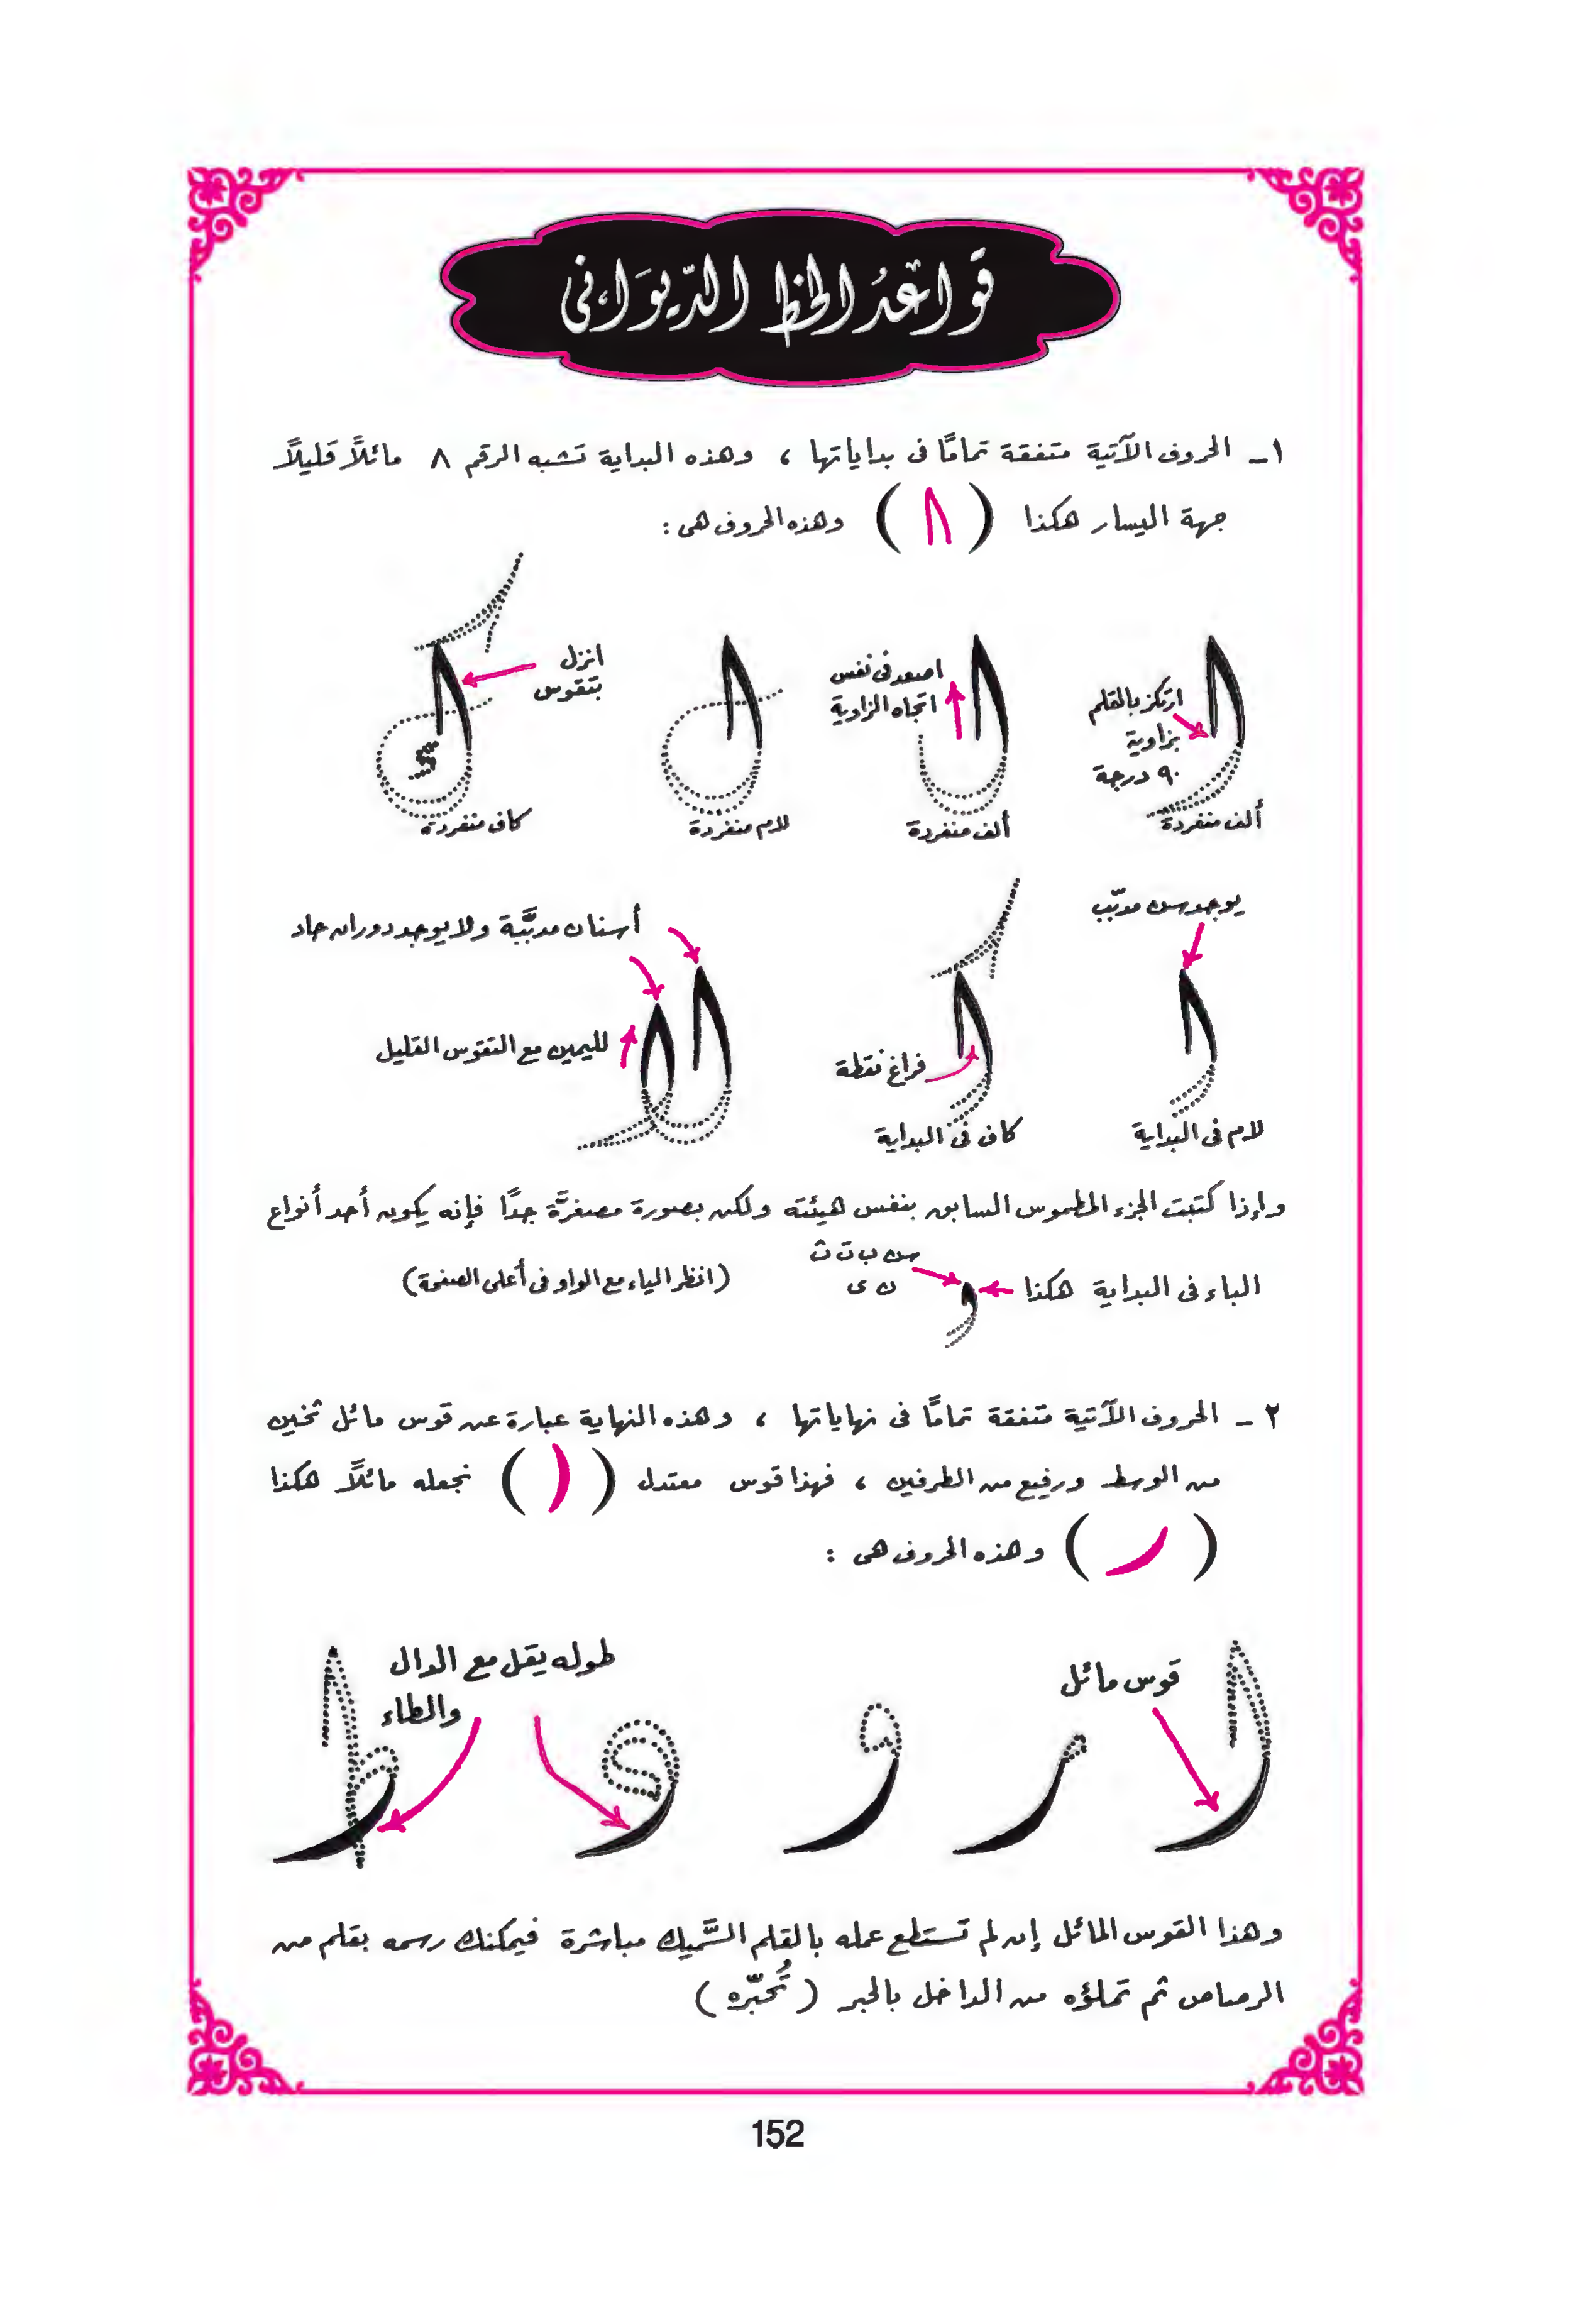 قواعدُ الخط الدّيوَانى
١ـ الحروف الآتية متفقة تمامًا فى بداياتها ، وهذه البداية تشبه الرقم ٨ مائلاً قليلاً
جهة اليسار هكذا ( ٨ ) وهذه الحروف هى :
ارتكز بالقلم
بزاوية
٩٠ درجة
ألف منفردة
اصعد فى نفس
اتجاه الزاوية
ألف منفردة
لام منفردة
انزل
بتقوس
كاف منفردة
يوجد سن مدبّب
لام فى البداية
فراغ نقطة
كاف فى البداية
أسنان مدبَّبة ولا يوجد دوران حاد
لليمين مع التقوس القليل
وإذا كتبت الجزء المطموس السابق بنفس هيئته ولكن بصورة مصغرَّة جدًا فإنه يكون أحد أنواع
الباء فى البداية هكذا
س ب ت ث
ن ى
(انظر الياء مع الواو فى أعلى الصفحة)
٢ ـ الحروف الآتية متفقة تمامًا فى نهاياتها ، وهذه النهاية عبارة عن قوس مائل ثخين
من الوسط ورفيع من الطرفين ، فهذا قوس معتدل ( ) نجعله مائلاً هكذا
( ) وهذه الحروف هى :
قوس مائل
طوله يقل مع الدال
والطاء
ا ر و د ط
وهذا القوس المائل إن لم تستطع عمله بالقلم السَّميك مباشرة فيمكنك رسمه بقلم من
الرصاص ثم تملؤه من الداخل بالحبر ( تُحبّره )
152